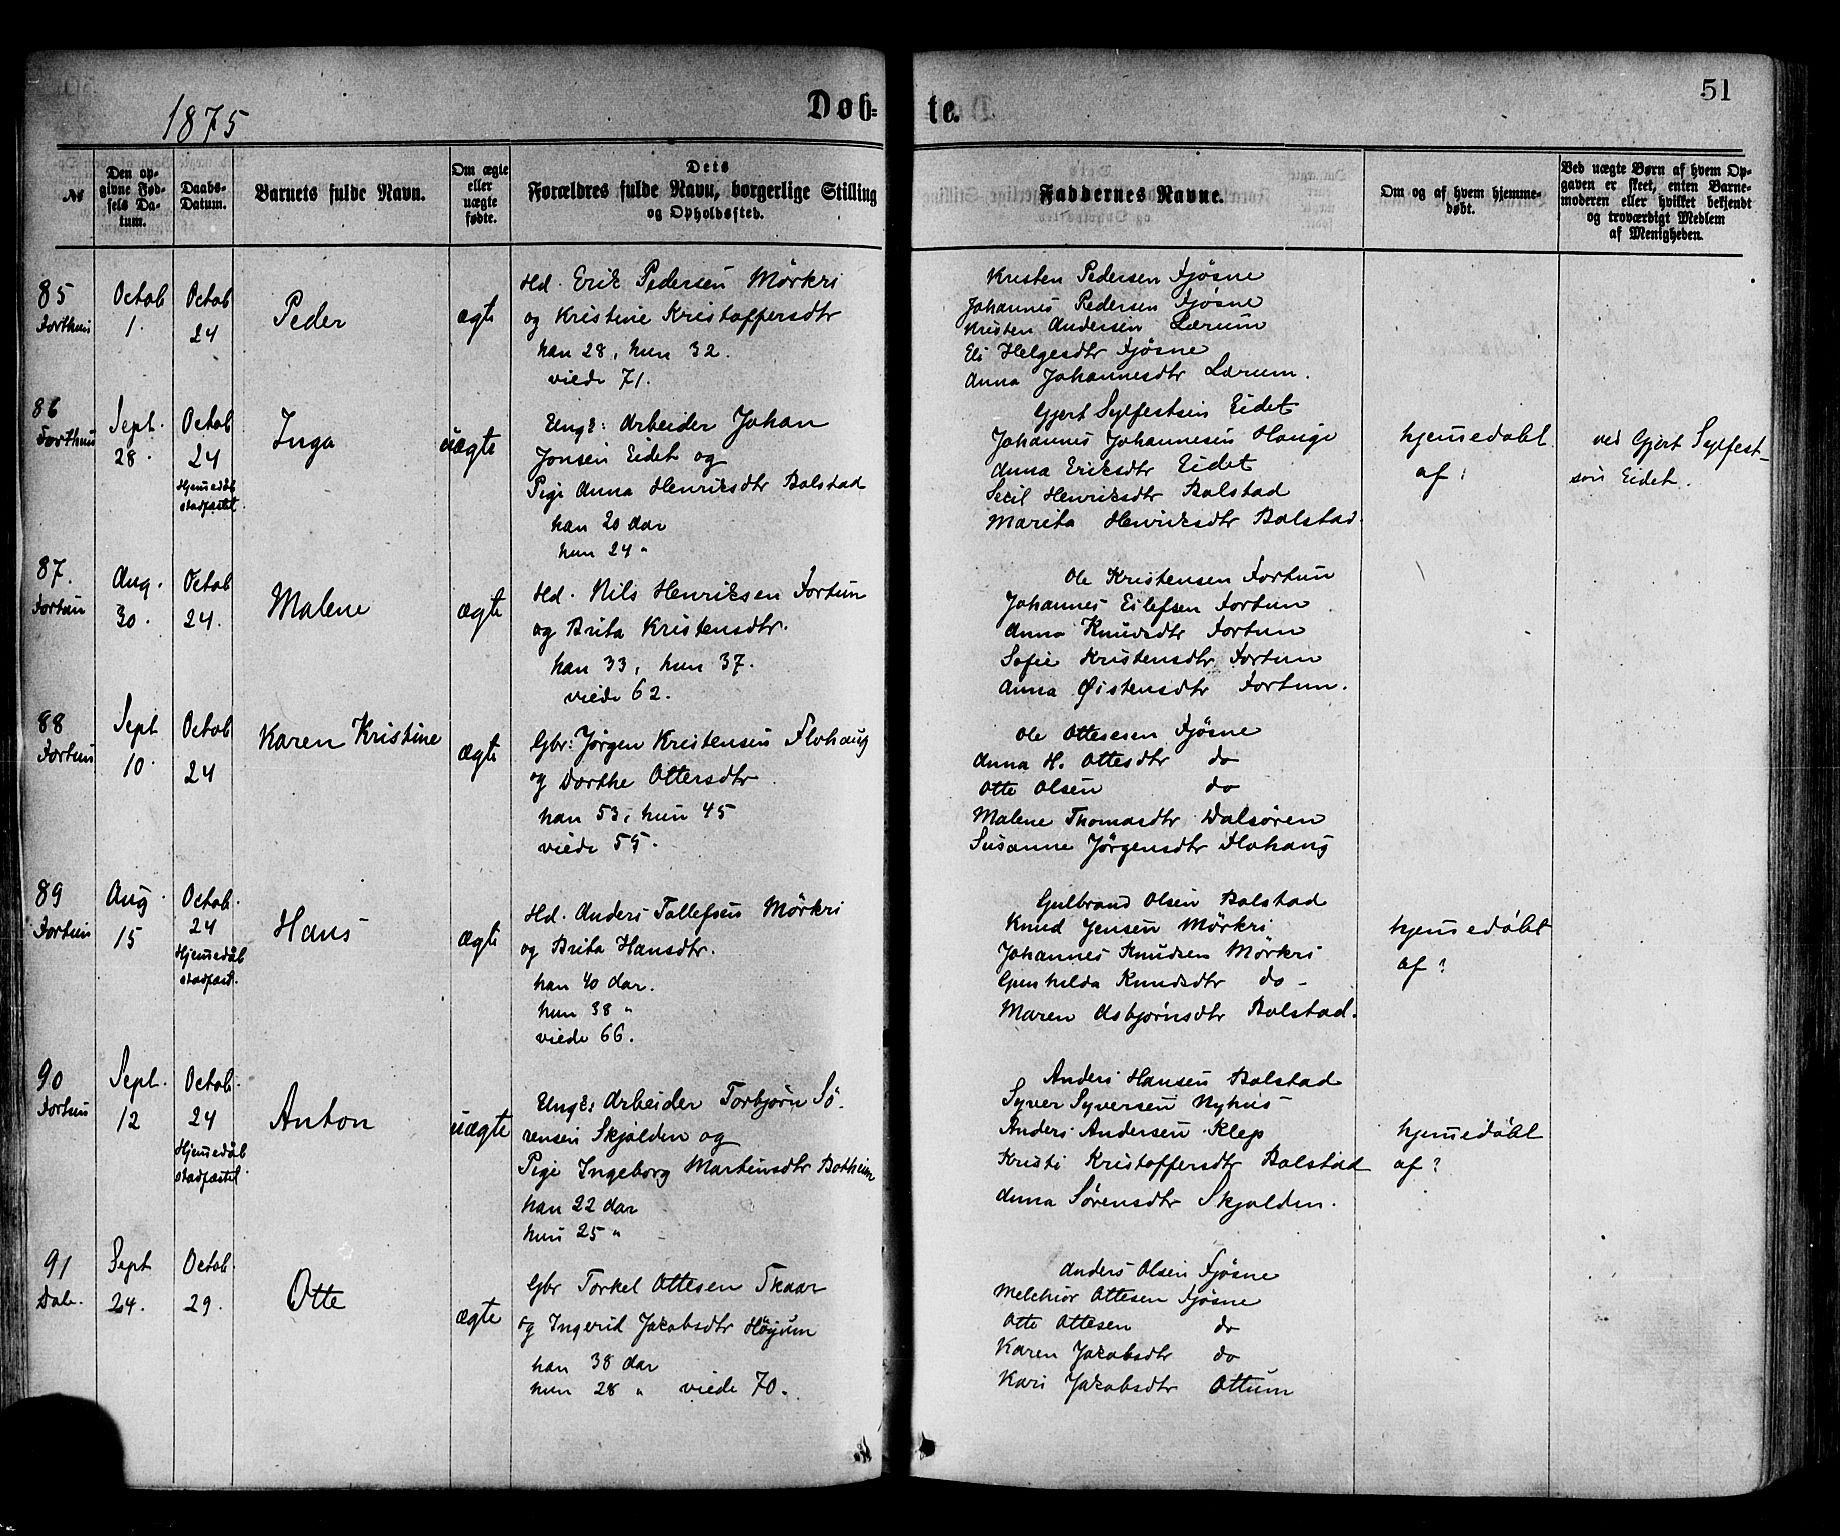 1875
Døb-
te.
51
No
Den op-
givne Fød-
sels Da-
tum.
Daabs-
Datum.
Barnets fulde Navn.
Om ægte
eller
uægte
fødte.
Dets
Forældres fulde Navn, borgerlige Stilling
og Opholdssted.
Faddernes Navne.
Om og af hvem hjemme-
døbt.
Ved uægte Børn af hvem Op-
gaven er skeet, enten Barne-
moderen eller hvilket bekjendt
og troværdigt Medlem
af Menigheden.
85
Forthun
Octob
1.
Octob
24
Peder
ægte
Hd. Erik Pedersen Mørkri
og Kristine Kristoffersdtr
han 28, hun 32.
viede 71.
Kristen Pedersen Fjøsne
Johannes Pedersen Fjøsne
Kristen Andersen Lærum
Eli Helgesdtr Fjøsne
Anna Johannesdtr Lærum.
86
Forthun
Sept.
28.
Octob
24
Hjemmedåb
stadfæstet.
Inga
uægte
Ungk: Arbeider Johan
Jonsen Eidet og
Pige Anna Henriksdtr Bolstad
han 20 Aar
hun 24 "
Gjert Sylfestsen Eidet
Johannes Johannesen Hauge
Anna Eriksdtr Eidet
Secil Henriksdtr Bolstad
Marita Henriksdtr Bolstad.
hjemmedøbt
af ?
ved Gjert Sylfest-
søn Eidet.
87.
Fortun
Aug.
30.
Octob
24.
Malene
ægte
Hd. Nils Henriksen Fortun
og Brita Kristensdtr.
han 33, hun 37.
viede 62.
Ole Kristensen Fortun
Johannes Eilefsen Fortun
Anna Knudsdtr Fortun
Sofie Kristensdtr Fortun
Anna Øistensdtr Fortun.
88
Fortun
Sept
10.
Octob
24
Karen Kristine
ægte
Gbr: Jørgen Kristensen Flohaug
og Dorthe Ottersdtr
han 53, hun 45
viede 55.
Ole Ottesen Fjøsne
Anna H. Ottesdtr do
Otte Olsen do
Malene Thomasdtr Dalsøren
Susanne Jørgensdtr Flohaug
89
Fortun
Aug
15
Octob.
24
Hjemmedåb
stadfæst.
Hans
ægte
Hd. Anders Tollefsen Mørkri
og Brita Hansdtr.
han 40 Aar.
hun 38 "
viede 66.
Gulbrand Olsen Bolstad
Knud Jensen Mørkri
Johannes Knudsen Mørkri
Gunhilda Knudsdtr do -
Maren Asbjørnsdtr Bolstad.
hjemmedøbt
af ?
90
Fortun
Sept.
12
Octob.
24
Hjemmedåb
stadfæstet
Anton
uægte
Ungk: Arbeider Torbjørn Sø-
rensen Skjolden og
Pige Ingeborg Martinsdtr Botheim
han 22 Aar
hun 25 "
Anders Hansen Bolstad
Syver Syversen Nyhus
Anders Andersen Klep
Kristi Kristoffersdtr Bolstad
Anna Sørensdtr Skjolden.
hjemmedøbt
af ?
91
Dale.
Sept
24.
Octob.
29.
Otte
ægte
Gbr Torkel Ottesen Skaar
og Ingerid Jakobsdtr Høyum
han 38 Aar
hun 28 " viede 70.
Anders Olsen Fjøsne
Melchior Ottesen Fjøsne
Otte Ottesen do
Karen Jakobsdtr do
Kari Jakobsdtr Ottum